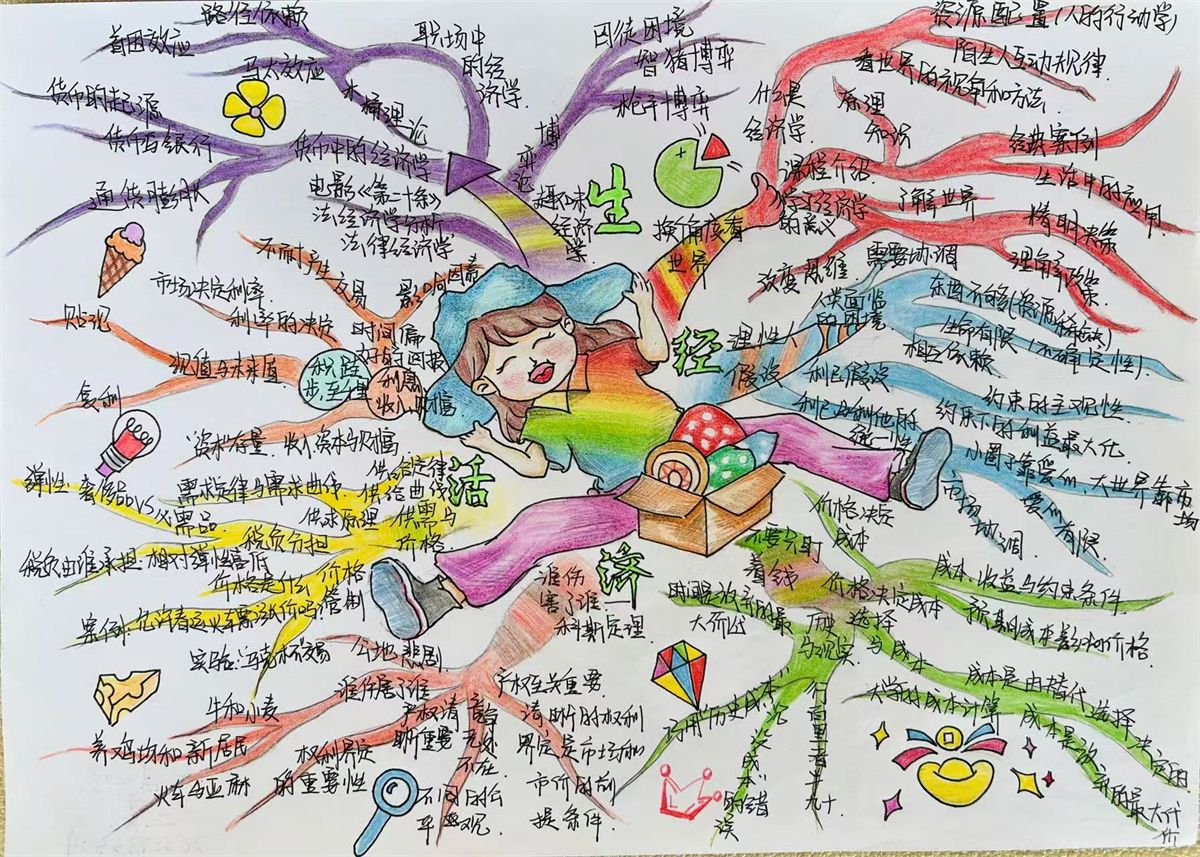 路径依赖
首因效应
马太效应
木桶理论
职场中
的经
济学.
货币的起源
货币与银行
通货膨胀
货币中的经济学
电影《第二十条》
法经济学分析
法律经济学
囚徒困境
智猪博弈
枪手博弈
博
弈论
趣味
经济
学
生
经
活
济
换角度看
世界
什么是
经济学.
资源配置(人的行动学)
陌生人互动规律.
看世界的视角和方法.
课程介绍.
原理
知识
经典案例
生活中的应用.
学习经济学
的意义
了解世界
精明决策
理解政策
改变思维
理性人
假设
人类面临
的困境.
需要协调
东西不够(资源稀缺)
生命有限(不确定性).
相互依赖
利己假设
约束的主观性.
约束下的利益最大化.
利己与利他的
统一性
小圈子靠爱心,大世界靠市场
爱心有限.
市场协调.
不耐产生交易
影响因素
市场决定利率.
利率的决定
时间偏
好的回报
贴现
现值与未来值
复利
积跬
步,至千里
利息
收入财富
资本存量.
收入资本与财富
供给定律
供给曲线
需求定律与需求曲线
供求原理
供需与
价格.
弹性
奢侈品VS必需品.
税负分担
税负由谁承担:相对弹性高低
价格是什么
价格
管制
案例:允许春运火车票涨价吗?
谁伤
害了谁一
科斯定理.
公地悲剧
谁伤害了谁
牛和小麦
养鸡场和新居民
火车与亚麻
产权至关重要.
产权清
晰重要
权利界定
的重要性
无处
不在.
不同的公
平观
清晰的权利
界定是市场和
市价的前
提条件.
不要只盯
着钱
价格决定
成本
价格决定成本
成本、收益与约束条件
预期成本影响价格.
选择
与成本
成本是由替代选择决定的
成本是放弃的最大代价
大学的成本计算
时间是放弃的最
大代价
历史成本
沉没成本
的错
误
行百里者半九十